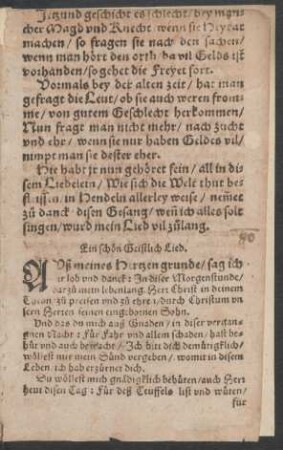 Jetzund geschicht es schlecht / bey man-
cher Magd vnd Knecht / wenn sie Heyrat
machen / so fragen sie nach den sachen /
wenn man hört den orth / da vil Gelds ist
vorhanden / so gehet die Freyet fort.
Vormals bey der alten zeit / hat man
gefragt die Leut / ob sie auch weren from-
me / von gutem Geschlecht herkommen /
Nun fragt man nicht mehr / nach zucht
vnd ehr / wenn sie nur haben Geldes vil /
nimpt man sie dester eher.
Hie habt jr nun gehöret fein / all in di-
sem Liedelein / Wie sich die Welt thut be-
in Hendeln allerley weise / nemet
zu danck disen Gesang / wen̄ ich alles solt
singen / wurd mein Lied vil zulang.
Ein schön Geistlich Lied.
AVß meines Hertzen grunde / sag ich
er lob vnd danck: In diser Morgenstunde /
dar zu mein lebenlang. Herr Christ in deinem
zu preisen vnd zu ehre / durch Christum vn
sern Herren seinen eingebornen Sohn.
Vnd das du mich auß Gnaden / in diser vergan-
gnen Nacht: Für Fahr vnd allem schaden / hast be-
hüt vnd auch bewacht / Ich bitt dich demütigklich /
wöllest mir mein Sünd vergeben / womit in disem
Leben / ich hab erzürnet dich.
Du wöllest mich gnädigklich behüten / auch Herr
heut disen Tag: Für deß Teuffels list vnd wüten /
für